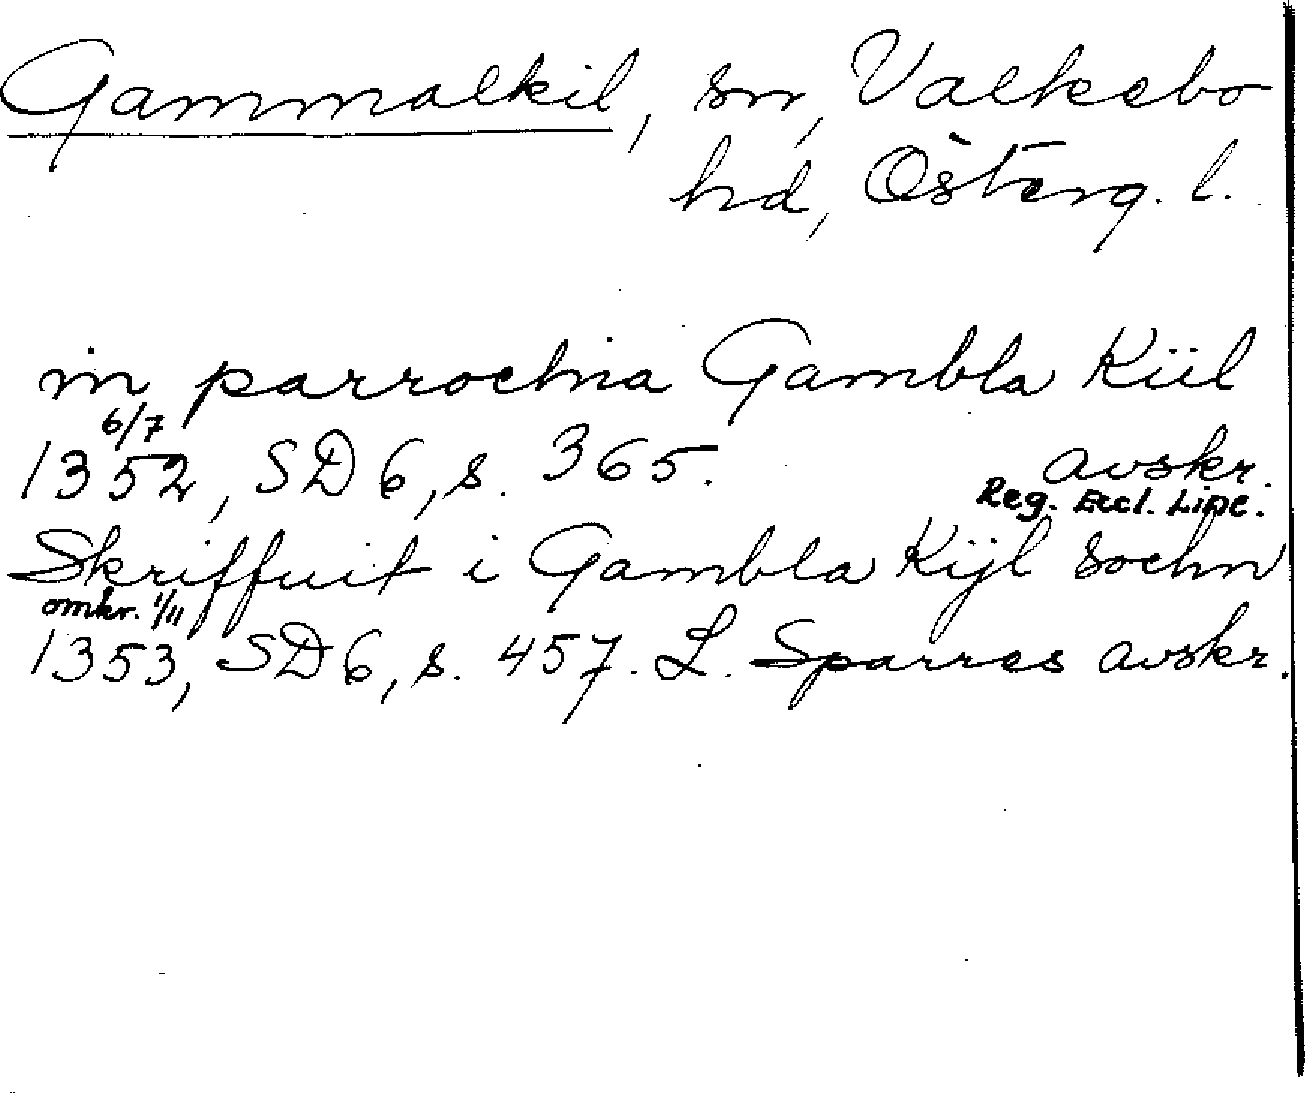 Gammalkil, sn, Valkebo
hd, Österg. l.
in parrochia Gambla Kiil
6/7
1352, SD 6, s. 365. avskr.
Reg. Eccl. Linc.
Skriffuit i Gambla Kijl sochn
omkr. 1/11
1353, SD 6, s. 457. L. Sparres avskr.